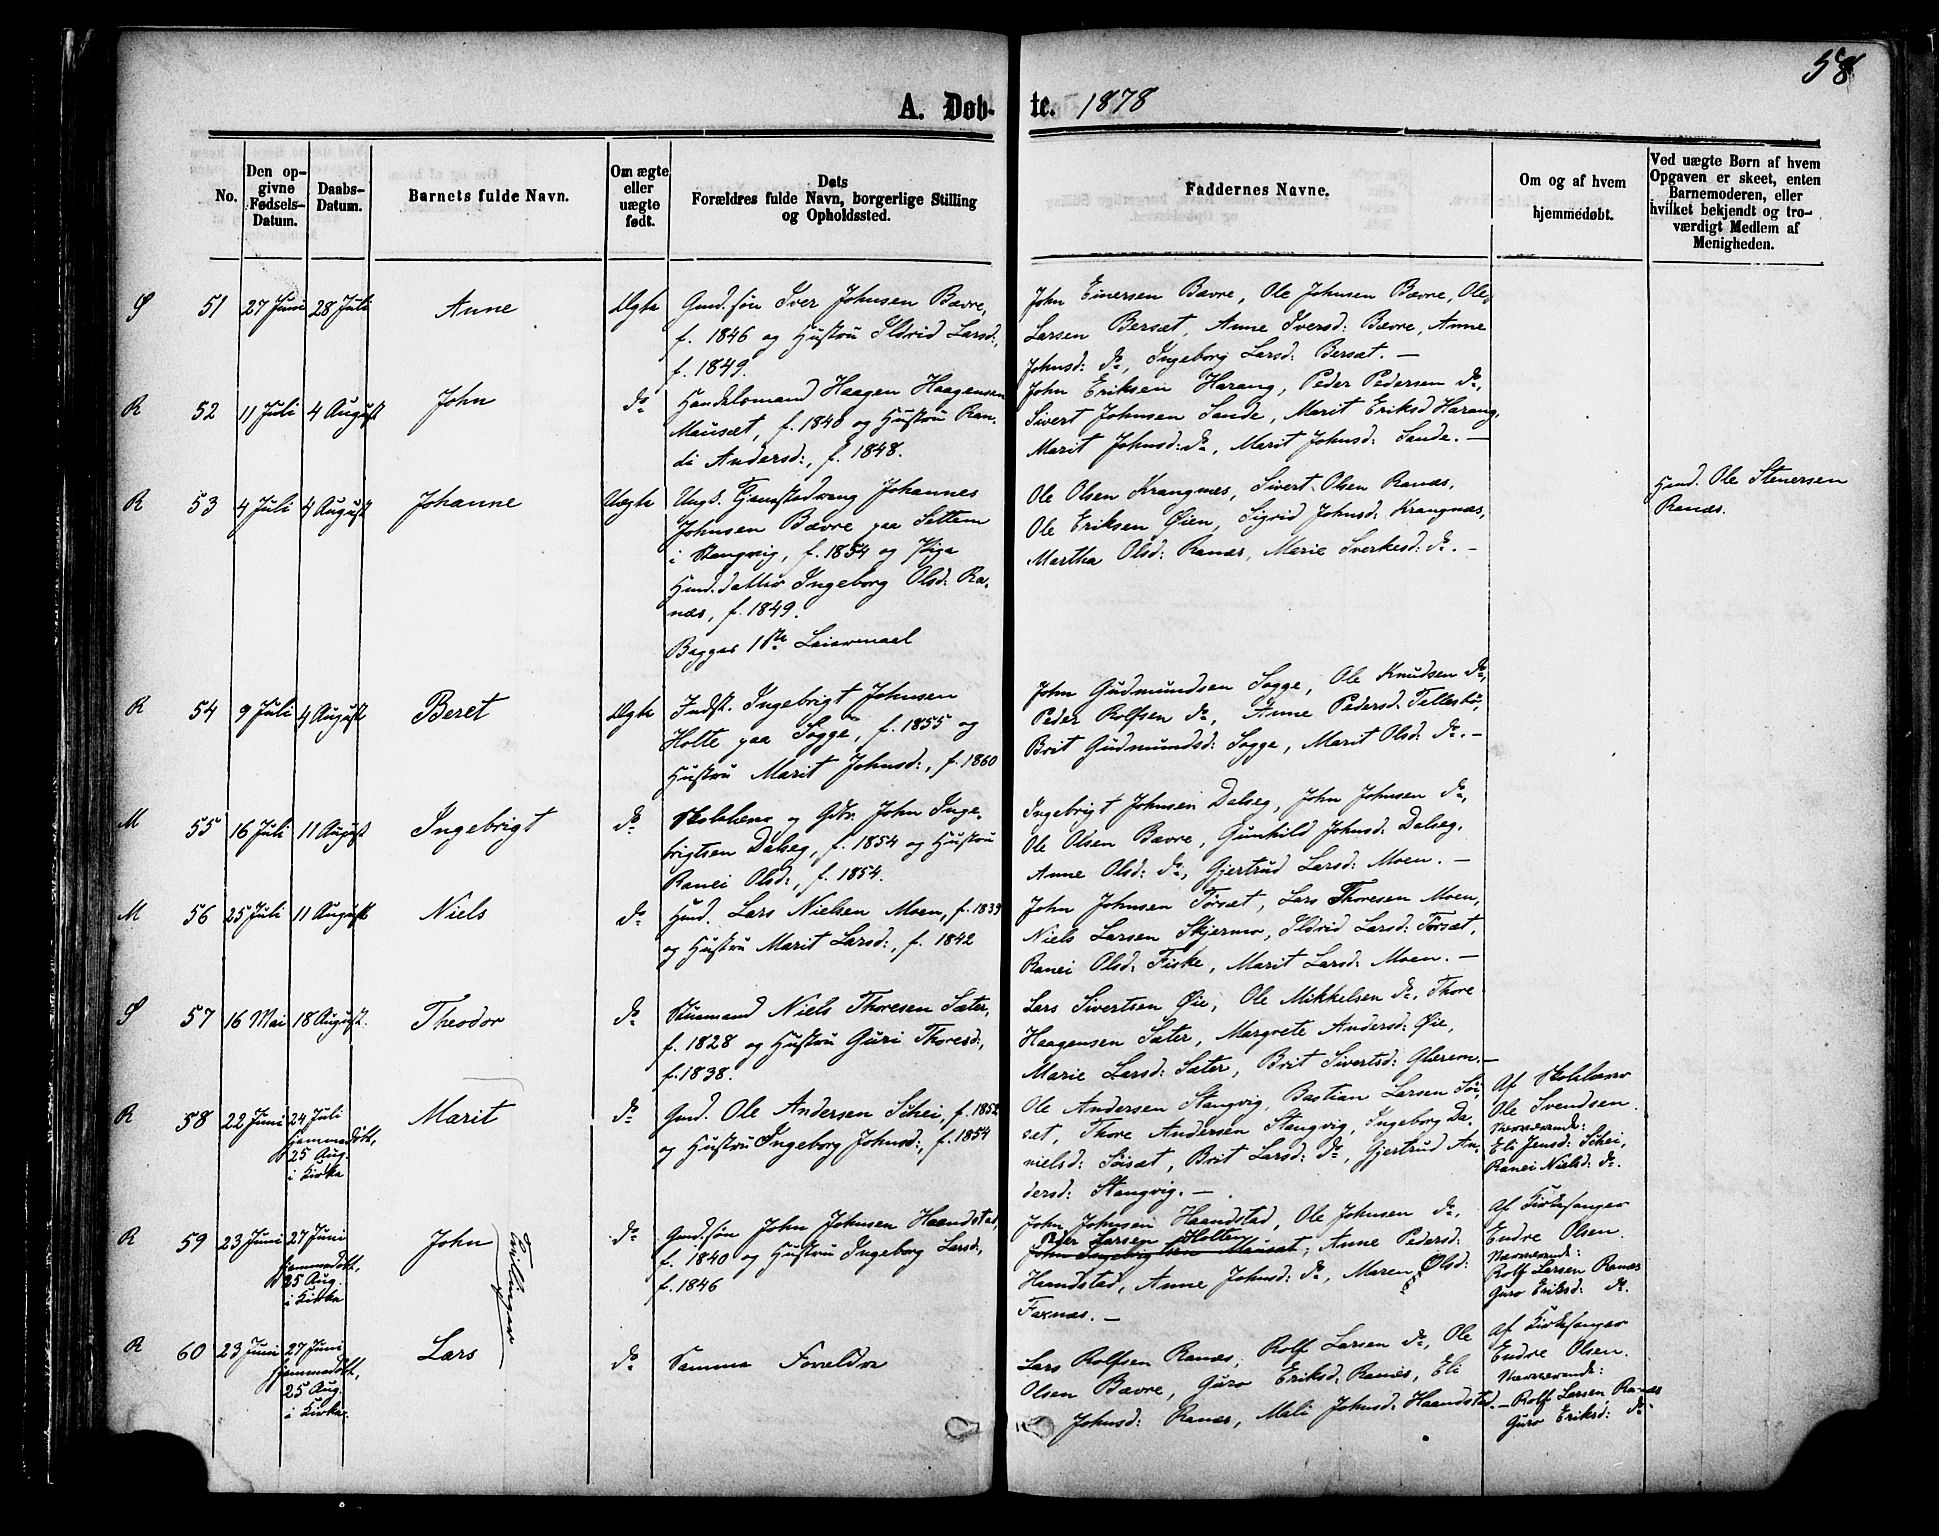 58
A. Døb-te. 1878
No.
Den opgivne Fødsels-Datum.
Daabs-Datum.
Barnets fulde Navn.
Om ægte eller uægte født.
Dets Forældres fulde Navn, borgerlige Stilling og Opholdssted.
Faddernes Navne.
Om og af hvem hjemmedøbt.
Ved uægte Børn af hvem Opgaven er skeet, enten Barnemoderen, eller hvilket bekjendt og troværdigt Medlem af Menigheden.
S 51 27 Juni 28 Juli Anne Ægte
Gmd. søn Iver Johnsen Bævre,
f. 1846 og Hustru Ildrid Larsd:,
f. 1849.
John Einersen Bævre, Ole Johnsen Bævre, Ole
Larsen Bersæt, Anne Iversd: Bævre, Anne
Johnsd: do, Ingeborg Larsd: Bersæt. —
R 52 11 Juli 4 August John do
Handelsmand Haagen Haagensen
Mausæt, f. 1840 og Hustru Ran-
di Andersd:, f. 1848.
John Eriksen Harang, Peder Pedersen do,
Sivert Johnsen Sande, Marit Eriksd Harang,
Marit Johnsd: do, Marit Johnsd: Sande. —
R 53 4 Juli 4 August Johanne Uægte
Ungk. Johannes
Johnsen Bævre paa Settem
i Stangvig, f. 1854 og Pige
Hmd. datter Ingeborg Olsd: Ra-
næs, f. 1849.
Begges 1ste Leiermaal
Ole Olsen Krangnæs, Sivert Olsen Ranæs,
Ole Eriksen Øien, Sigrid Johnsd: Krangnæs,
Martha Olsd: Ranæs, Marie Sverkesd: do. —
Hmd. Ole Stenersen
Ranæs.
R 54 9 Juli 4 August Beret Ægte
Indst. Ingebrigt Johnsen
Holte paa Sogge, f. 1855 og
Hustru Marit Johnsd:, f. 1860
John Gudmundsen Sogge, Ole Knudsen do,
Peder Rolfsen do, Anne Pedersd: Tellesbø,
Brit Gudmundsd: Sogge, Marit Olsd: do. —
M 55 16 Juli 11 August Ingebrigt do
Skolelærer og Gbr. John Inge-
brigtsen Dalseg, f. 1854 og Hustru
Ranei Olsd:, f. 1854.
Ingebrigt Johnsen Dalseg, John Johnsen do,
Ole Olsen Bævre, Gunhild Johnsd: Dalseg,
Anne Olsd: do, Gjertrud Larsd: Moen. —
M 56 25 Juli 11 August Niels do
Hmd. Lars Nielsen Moen, f. 1839
og Hustru Marit Larsd:, f. 1842
John Johnsen Tørsæt, Lars Thoresen Moen,
Niels Larsen Skjermo, Ildrid Larsd: Tørsæt,
Ranei Olsd: Fiske, Marit Larsd: Moen. —
S 57 16 Mai 18 August. Theodor do
Stuemand Niels Thoresen Sæter,
f. 1828 og Hustru Guri Thoresd:,
f. 1838.
Lars Sivertsen Øie, Ole Mikkelsen do, Thore
Haagensen Sæter, Margrete Andersd: Øie,
Marie Larsd: Sæter, Brit Sivertsd: Glærem. —
R 58 22 Juni 24 Juli
hjemmedøbt,
25 Aug.
i Kirke
Marit do
Gmd. Ole Andersen Schei, f. 1852
og Hustru Ingeborg Johnsd:, f. 1854
Ole Andersen Stangvig, Bastian Larsen Søi-
sæt, Thore Andersen Stangvig, Ingeborg Da-
nielsd: Søisæt, Brit Larsd: do, Gjertrud An-
dersd: Stangvig. —
Af Skolelærer
Ole Svendsen.
Nærværende:
Eli Jensd: Schei,
Ranei Nielsd: do.
R 59 23 Juni 27 Juni
hjemmedøbt,
25 Aug.
i Kirke
John
Tvillinger
do
Gmd. søn John Johnsen Haandstad,
f. 1840 og Hustru Ingeborg Larsd:,
f. 1846
John Johnsen Haandstad, Ole Johnsen do,
Peder Larsen Holten
John Ingebrigtsen Mausæt, Anne Pedersd:
Haandstad, Anne Johnsd: do, Maren Olsd:
Faxnæs. —
Af Kirkesanger
Endre Olsen.
Nærværende:
Rolf Larsen Ranæs
Guro Eriksd: do.
R 60 23 Juni 27 Juni
hjemmedøbt,
25 Aug.
i Kirke.
Lars do Samme Forældre
Lars Rolfsen Ranæs, Rolf Larsen do, Ole
Olsen Bævre, Guro Eriksd: Ranæs, Eli
Johnsd: Ranæs, Mali Johnsd: Haandstad. —
Af Kirkesanger
Endre Olsen.
Nærværende:
Rolf Larsen Ranæs
Guro Eriksd: do.